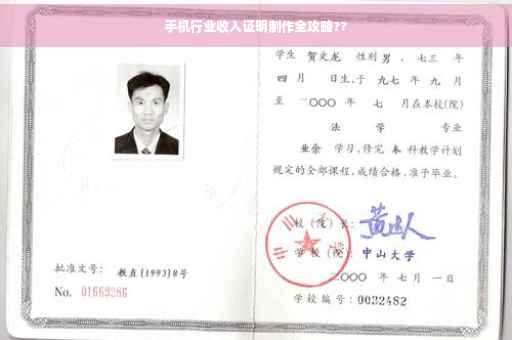 手机行业收入证明制作全攻略??
学生 贺文龙 性别 男 、七三 年
四 月 日生,于 九七 年 九 月
至 二〇〇〇 年 七 月在本校(院)
法 学 专业
业余 学习,修完 本 科教学计划
规定的全部课程,成绩合格,准予毕业。
校(院)长:
学 校(院): 中山大学
二〇〇〇 年 七 月 一 日
学校编号: 0032482
批准文号: 教直[1993]8号
No. 01663286